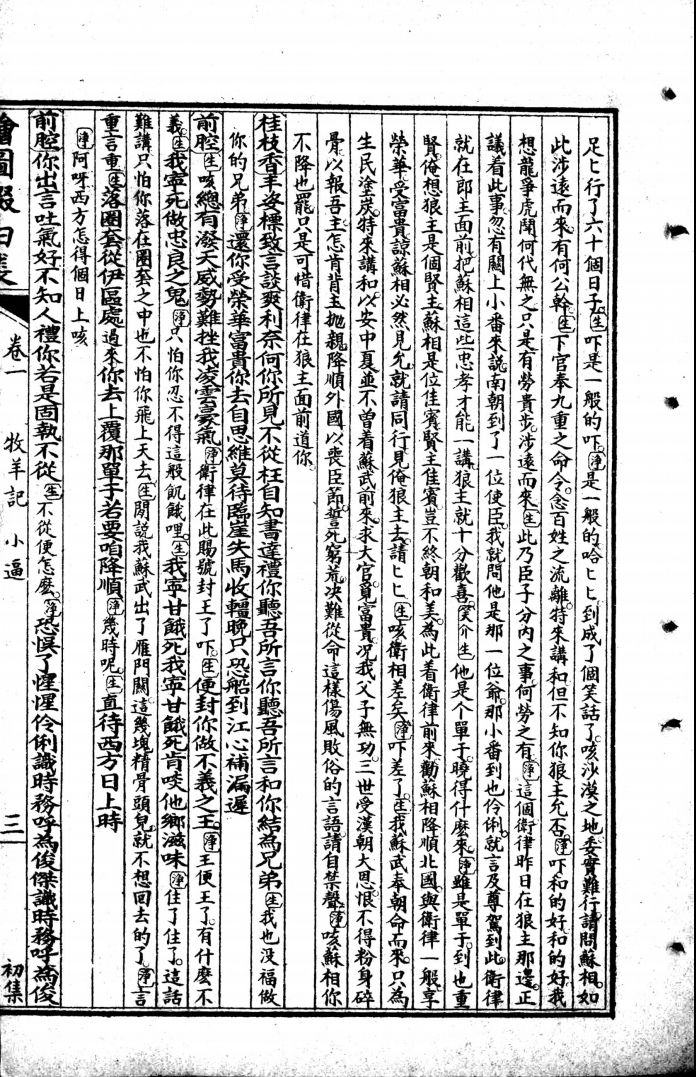 足匕行了六十個日子(生)吓是一般的吓(淨)是一般的哈匕匕到成了個笑話了咳沙漠之地委實難行請問蘇相如
此涉遠而來有何公幹(生)下官奉九重之命令念百姓之流離特來講和但不知你狼主允否(淨)吓和的好和的好我
想龍爭虎鬬何代無之只是有勞貴步涉遠而來(生)此乃臣子分內之事何勞之有(淨)這個衛律昨日在狼主那邊正
議着此事忽有關上小番來說南朝到了一位使臣我就問他是那一位爺那小番到也伶俐就言及尊駕到此衛律
就在郎主面前把蘇相這些忠孝才能一講狼主就十分歡喜(笑介生)他是个單于曉得什麼來(淨)雖是單于到也重
賢俺想狼主是個賢主蘇相是位佳賓賢主佳賓豈不終朝和美為此着衛律前來勸蘇相降順北國與衛律一般享
榮華受富貴諒蘇相必然見允就請同行見俺狼主去請匕匕(生)咳衛相差矣(淨)吓差了(生)我蘇武奉朝命而來只為
生民塗炭特來講和以安中夏並不曾着蘇武前來求大官覓富貴况我父子無功三世受漢朝大恩恨不得粉身碎
骨以報吾主怎肯背主拋親降順外國以喪臣節誓死窮荒决難從命這樣傷風敗俗的言語請自禁聲(淨)咳蘇相你
不降也罷只是可惜衛律在狼主面前道你
桂枝香丰姿標致言談爽利奈何你所見不從枉自知書達禮你聽吾所言你聽吾所言和你結為兄弟(生)我也没福做
你的兄弟(淨)還你受榮華富貴你去自思維莫待臨崖失馬收韁晚只恐船到江心補漏遲
前腔(生)咳總有潑天威勢難挫我凌雲豪氣(淨)衛律在此賜號封王了吓(生)便封你做不義之王(淨)王便王了有什麼不
義(生)我寧死做忠良之鬼(淨)只怕你忍不得這般飢餓哩(生)我寧甘餓死我寧甘餓死肯啖他鄉滋味(淨)住了住了這話
難講只怕你落在圈套之中也不怕你飛上天去(生)閒說我蘇武出了雁門關這幾塊精骨頭兒就不想回去的了(淨)言
重言重(生)落圈套從伊區處過來你去上覆那單于若要咱降順(淨)幾時呢(生)直待西方日上時
(淨)阿呀西方怎得個日上咳
前腔你出言吐氣好不知人禮你若是固執不從(生)不從便怎麽(淨)恐悞了惺惺伶俐識時務呼為俊傑識時務呼為俊
繪圖綴白裘 卷一 牧羊記 小逼 三 初集